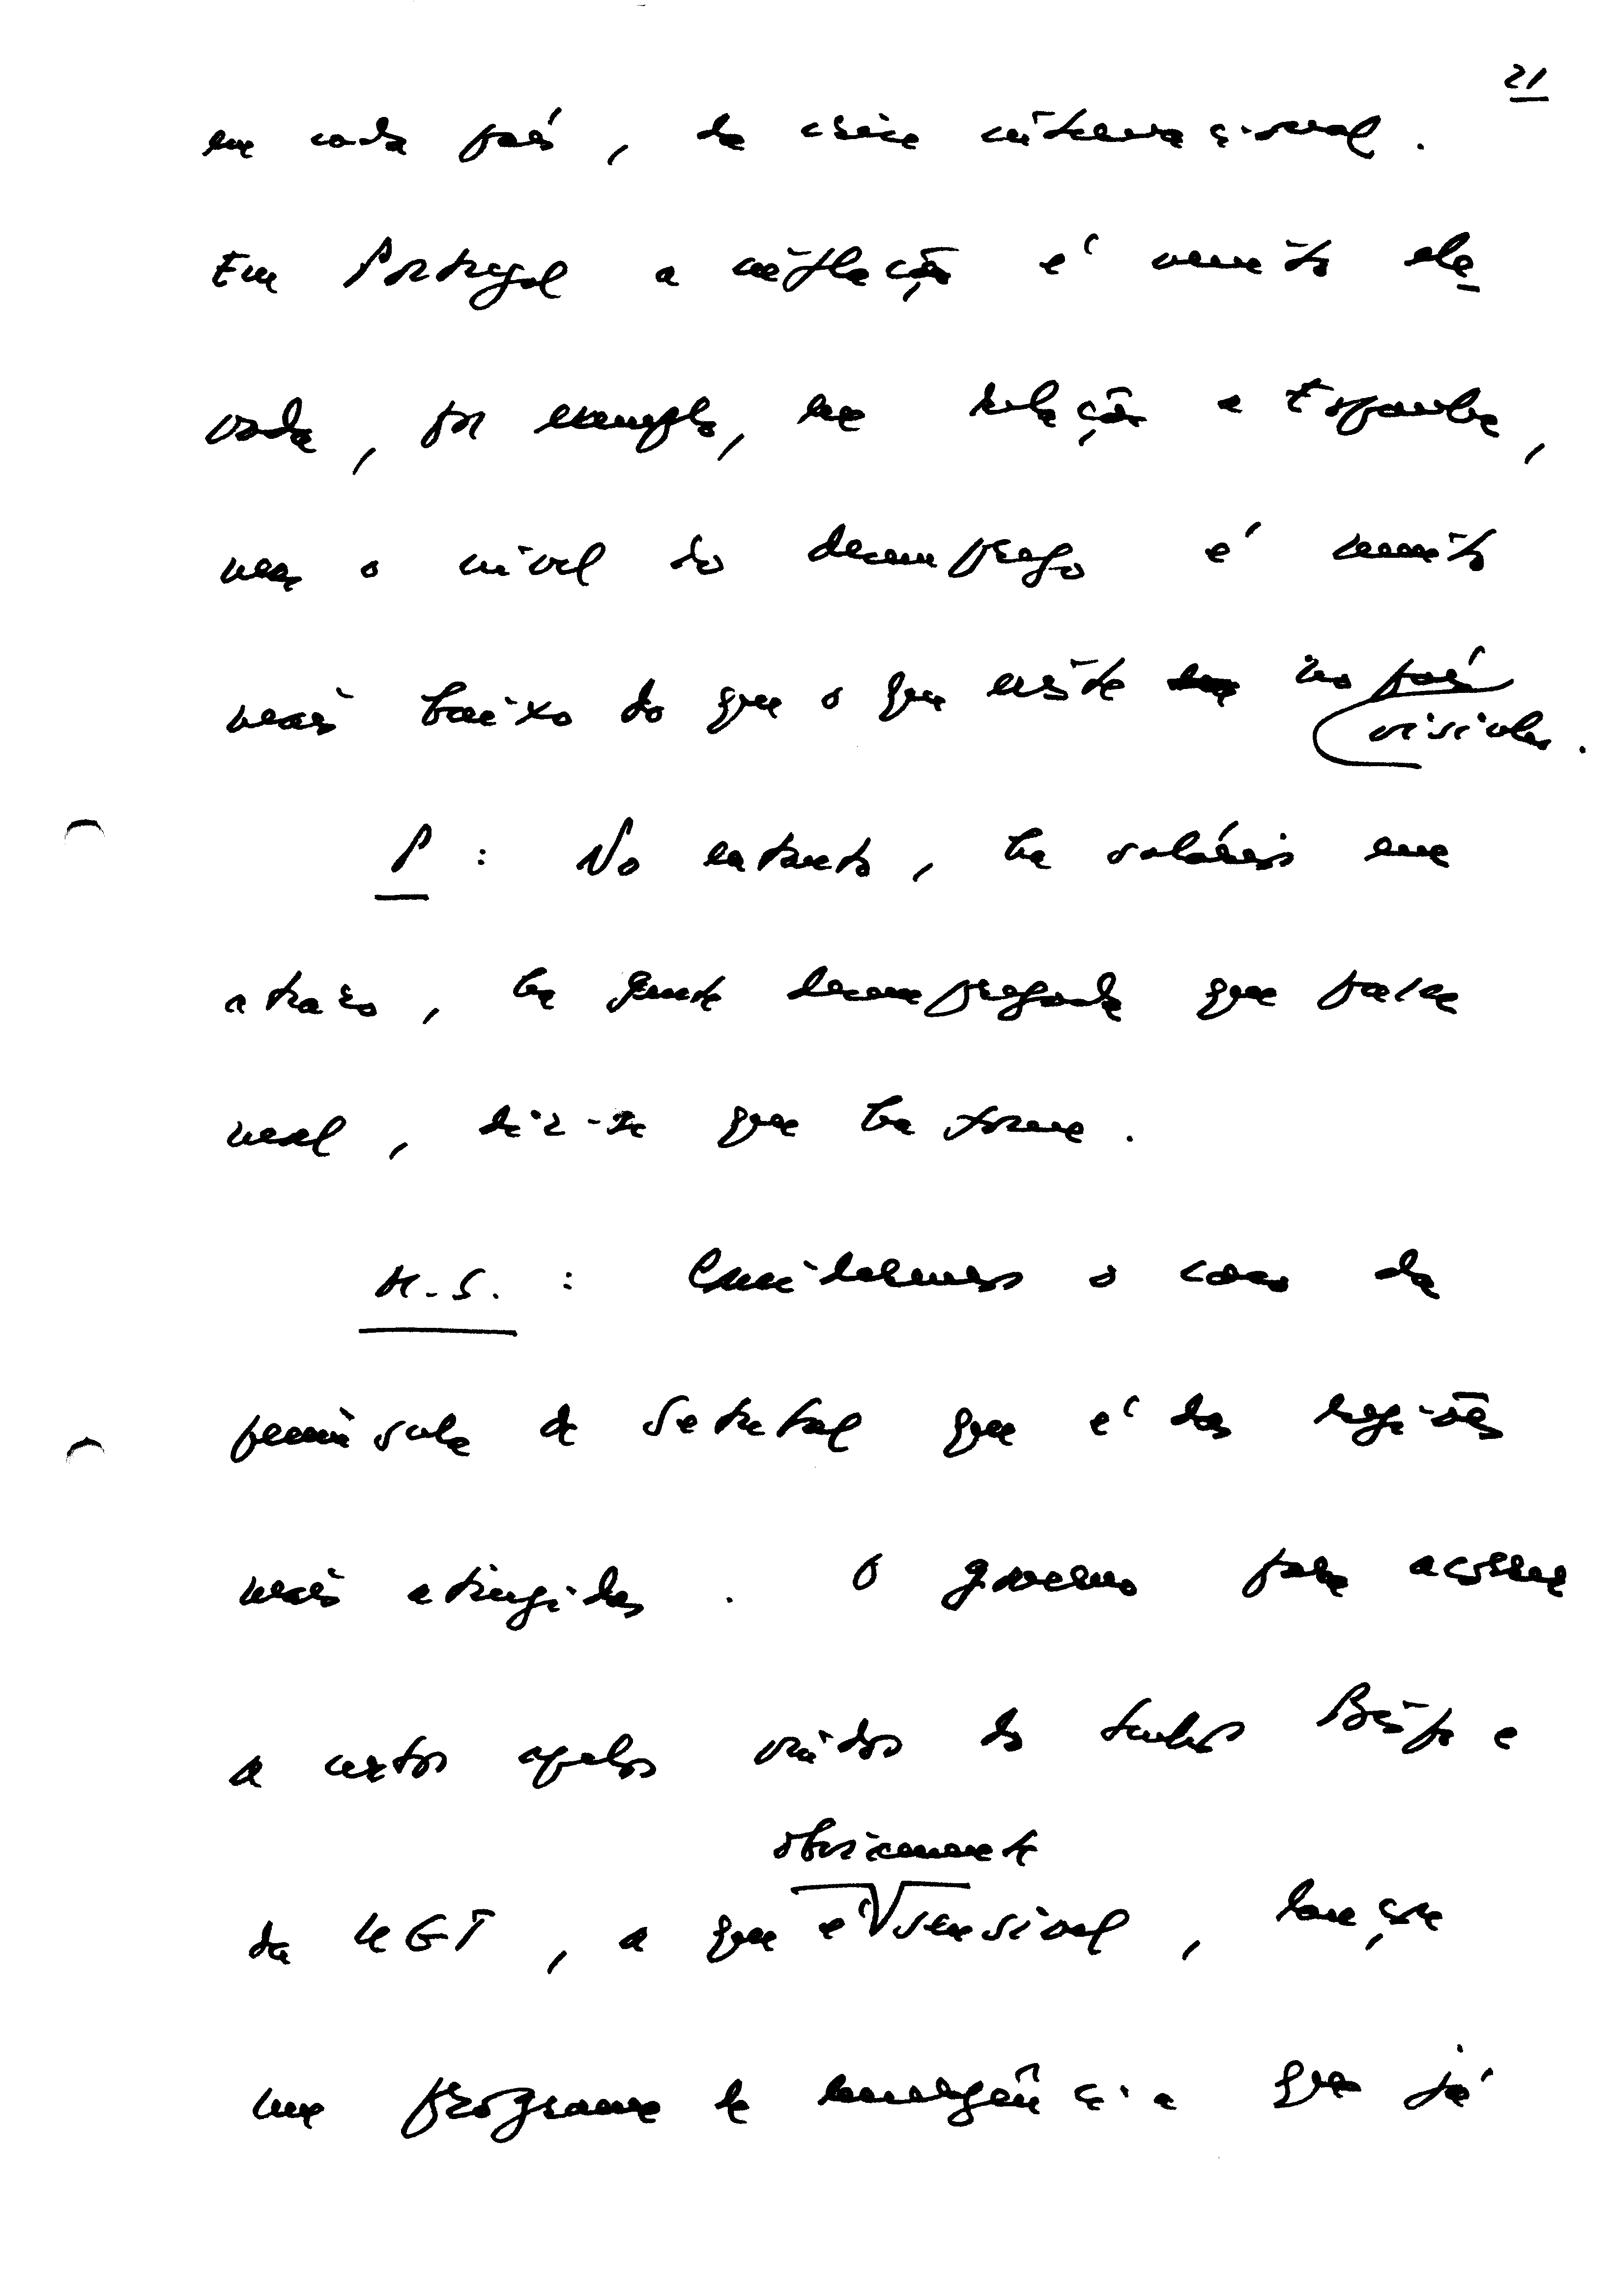 21
em cada país, da crise internacional.
Em Portugal a inflação é muito ele
vada, por exemplo, em relação a Espanha,
mas o nível do desemprego é muito
mais baixo do que o que existe no país
vizinho.
P: No entanto, há salários em
atraso, há gente desempregada que passa
mal, diz-se que há fome.
M.S.: Consideremos o caso da
península de Setúbal que é das regiões
mais atingidas. O governo para acorrer
a certos apelos vindos do senhor Bispo e
obviamente
da UGT, a que é sensível, lançou
um programa de emergência que já